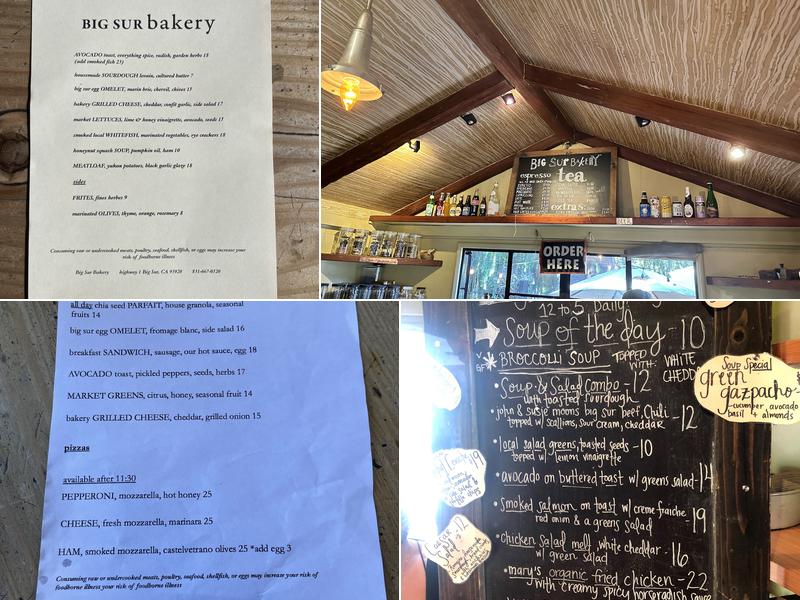 BIG SUR bakery
AVOCADO toast, everything spice, radish, garden herbs 18
(add smoked fish 25)
housemade SOURDOUGH levain, cultured butter 7
big sur egg OMELET, marin brie, chervil, chives 15
bakery GRILLED CHEESE, cheddar, confit garlic, side salad 17
market LETTUCES, lime & honey vinaigrette, avocado, seeds 17
smoked local WHITEFISH, marinated vegetables, rye crackers 18
honeynut squash SOUP, pumpkin oil, ham 10
MEATLOAF, yukon potatoes, black garlic glaze 18
sides
FRITES, fines herbes 9
marinated OLIVES, thyme, orange, rosemary 8
Consuming raw or undercooked meats, poultry, seafood, shellfish, or eggs may increase your risk
of foodborne illness
Big Sur Bakery highway 1 Big Sur, CA 93920 831-667-0520
BIG SUR BAKERY
espresso
tea
extras
ORDER
HERE
all day chia seed PARFAIT, house granola, seasonal
fruits 14
big sur egg OMELET, fromage blanc, side salad 16
breakfast SANDWICH, sausage, our hot sauce, egg 18
AVOCADO toast, pickled peppers, seeds, herbs 17
MARKET GREENS, citrus, honey, seasonal fruit 14
bakery GRILLED CHEESE, cheddar, grilled onion 15
pizzas
available after 11:30
PEPPERONI, mozzarella, hot honey 25
CHEESE, fresh mozzarella, marinara 25
HAM, smoked mozzarella, castelvetrano olives 25 *add egg 3
Consuming raw or undercooked meats, poultry, seafood, shellfish, or eggs may increase your risk of
foodborne illness your risk of foodborne illness
12 to 5 Daily
Soup of the day - 10
V GF * BROCCOLLI SOUP TOPPED WITH: WHITE CHEDD
• Soup & Salad Combo - 12
with toasted sourdough
• john & susie mooms big sur beef Chili - 12
topped w/ scallions, sour cream, cheddar
• local salad greens, toasted seeds - 10
topped w/ lemon vinaigrette
• avocado on buttered toast w/ greens salad - 14
• Smoked salmon on toast w/ creme fraiche 19
red onion & a greens salad
• chicken salad melt, white cheddar - 16
w/ green salad
• mary's organic fried chicken - 22
with creamy spicy horseradish sauce
Soup Special
green
gazpacho
- cucumber, avocado
basil & almonds
19
Caesar
Salad 12